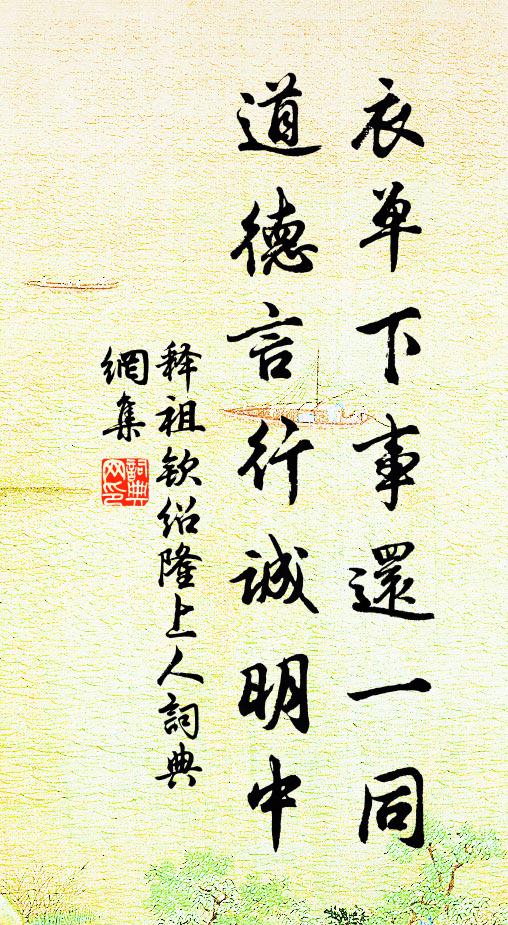 衣单下事還一同
道德言行誠明中
释祖钦绍隆上人詞典
網集
詞典
网印